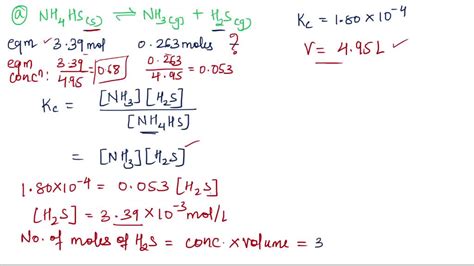 (a) NH4HS(s) ⇌ NH3(g) + H2S(g)
Kc = 1.80 × 10^-4
eqm 3.39 mol 0.263 moles ?
V = 4.95 L ✓
eqm concn: 3.39/4.95 = 0.68 0.263/4.95 = 0.053
Kc = [NH3][H2S] / [NH4HS]
= [NH3][H2S] ✓
1.80×10^-4 = 0.053 [H2S]
[H2S] = 3.39 × 10^-3 mol/L
No. of moles of H2S = conc. × volume = 3